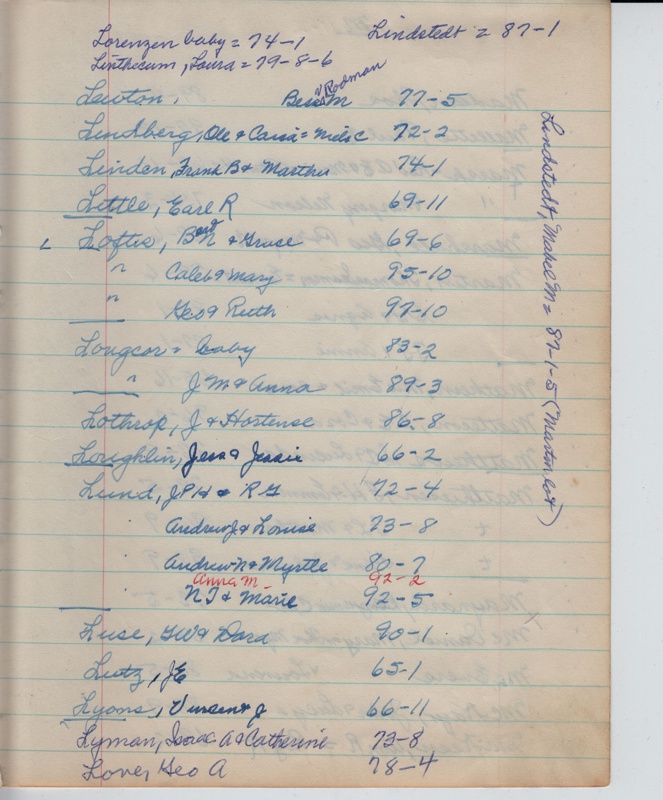 Lorenzen baby = 74-1
Lindstedt = 87-1
Linthecum, Laura = 79-8-6
Lawton, Bess M Rodman 77-5
Lindberg, Ole & = Niels C 72-2
Linden, Frank B & Martha 74-1
Little, Earl R 69-11
Loftis, Bert N & Grace 69-6
" Caleb & Mary 95-10
" Geo & Ruth 97-10
Longcor = baby 83-2
" J M & Anna 89-3
Lothrop, J & Hortense 86-8
Loughlin, Jess & Jessie 66-2
Lund, J P H & R G 72-4
Andrew J & Louise 73-8
Andrew N & Myrtle 80-7
Anna M- 92-2
N J & Marie 92-5
Luse, GW & Dora 90-1
Lutz, JE 65-1
Lyons, Vincent J 66-11
Lyman, Isaac A & Catherine 73-8
Love, Geo A 78-4
Lindstedt, Mabel M = 87-1-5 (Marton lot)